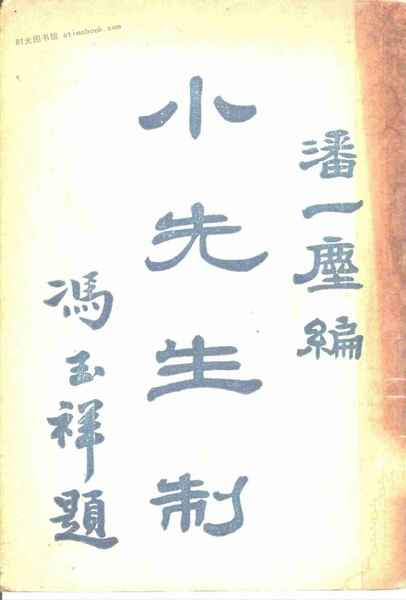 时光图书馆 atimebook.com
潘一塵編
小先生制
馮玉祥題